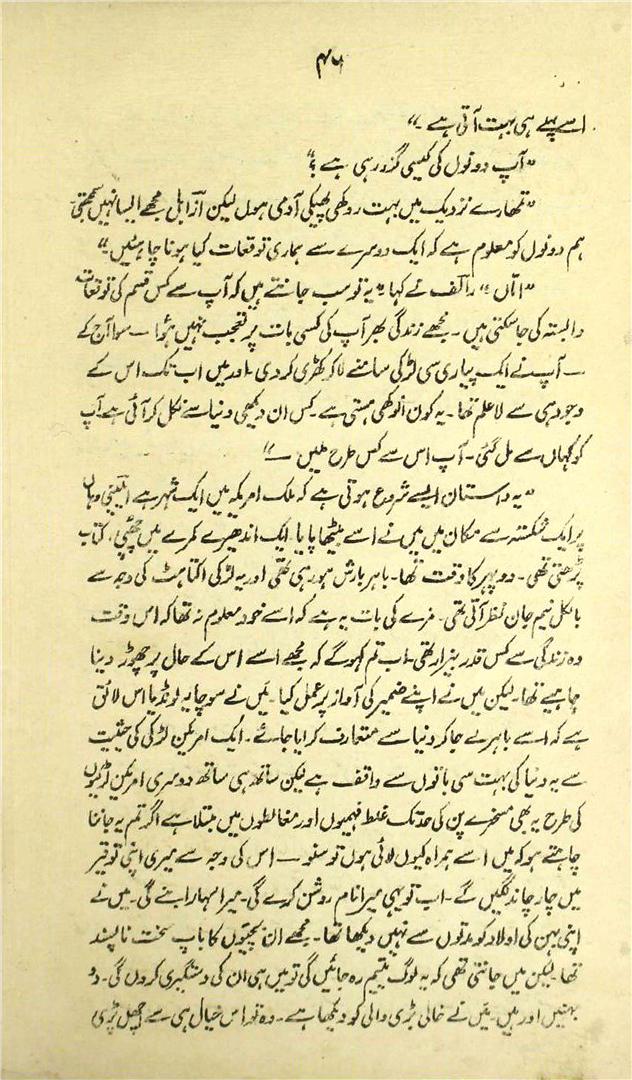 ۴۶
اسے پہلے ہی بہت آتی ہے۔"
"آپ دونوں کی کیسی گزر رہی ہے؟"
"تمہارے نزدیک میں بہت روکھی پھیکی آدمی ہوں لیکن ازابل مجھے ایسا نہیں سمجھتی
ہم دونوں کو معلوم ہے کہ ایک دوسرے سے ہماری توقعات کیا ہونا چاہئیں۔"
"اماں" رالف نے کہا "یہ تو سب جانتے ہیں کہ آپ سے کس قسم کی توقعات
وابستہ کی جاسکتی ہیں۔ مجھے زندگی بھر آپ کی کسی بات پر تعجب نہیں ہوا — سوا آج کے
— آپ نے ایک پیاری سی لڑکی سامنے لا کر کھڑی کر دی۔ اور میں اب تک اس کے
وجود ہی سے لاعلم تھا۔ یہ کون انوکھی ہستی ہے۔ کس ان دیکھی دنیا سے نکل کر آئی ہے۔ آپ
کو کہاں سے مل گئی۔ آپ اس سے کس طرح ملیں —"
"یہ داستان ایسے شروع ہوتی ہے کہ ملک امریکہ میں ایک شہر ہے البینی وہاں
پر ایک شکستہ سے مکان میں میں نے اسے بیٹھا پایا۔ ایک اندھیرے کمرے میں چھپی، کتاب
پڑھتی تھی۔ دوپہر کا وقت تھا۔ باہر بارش ہو رہی تھی اور یہ لڑکی اکتاہٹ کی وجہ سے
بالکل نیم جان نظر آتی تھی۔ مزے کی بات یہ ہے کہ اسے خود معلوم نہ تھا کہ اس وقت
وہ زندگی سے کس قدر بیزار تھی۔ اب تم کہو گے کہ مجھے اسے اس کے حال پر چھوڑ دینا
چاہیے تھا۔ لیکن میں نے اپنے ضمیر کی آواز پر عمل کیا۔ میں نے سوچا یہ لونڈیا اس لائق
ہے کہ اسے باہر لے جا کر دنیا سے متعارف کرایا جائے۔ ایک امریکن لڑکی کی حیثیت
سے یہ دنیا کی بہت سی باتوں سے واقف ہے لیکن ساتھ ہی ساتھ دوسری امریکن لڑکیوں
کی طرح یہ بھی مسخرے پن کی حد تک غلط فہمیوں اور مغالطوں میں مبتلا ہے اگر تم یہ جاننا
چاہتے ہو کہ میں اسے ہمراہ کیوں لائی ہوں تو سنو — اس کی وجہ سے میری اپنی توقیر
میں چار چاند لگیں گے۔ اب تو یہی میرا نام روشن کرے گی۔ میرا سہارا بنے گی۔ میں نے
اپنی بہن کی اولاد کو مدتوں سے نہیں دیکھا تھا۔ مجھے ان بچیوں کا باپ سخت ناپسند
تھا۔ لیکن میں جانتی تھی کہ یہ لوگ یتیم رہ جائیں گی تو میں ہی ان کی دستگیری کروں گی۔ دو
بہنیں اور ہیں۔ میں نے خالی بڑی والی کو دیکھا ہے۔ وہ تو اس خیال ہی سے اچھل پڑی